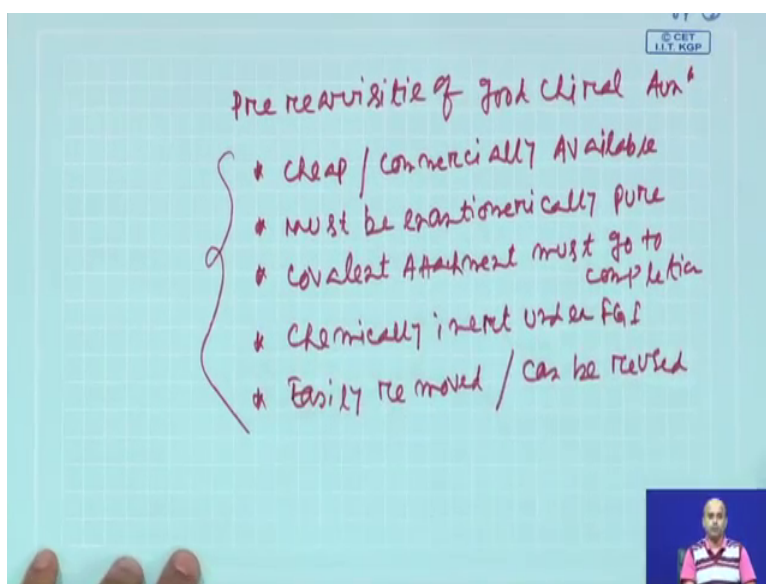 © CET
I.I.T. KGP
Pre rearvisitie of good chiral Aux*
* cheap / commercially Available
* must be enantiomerically pure
* covalent Attachment must go to
completion
* Chemically inert under FGI
* Easily removed / can be reused